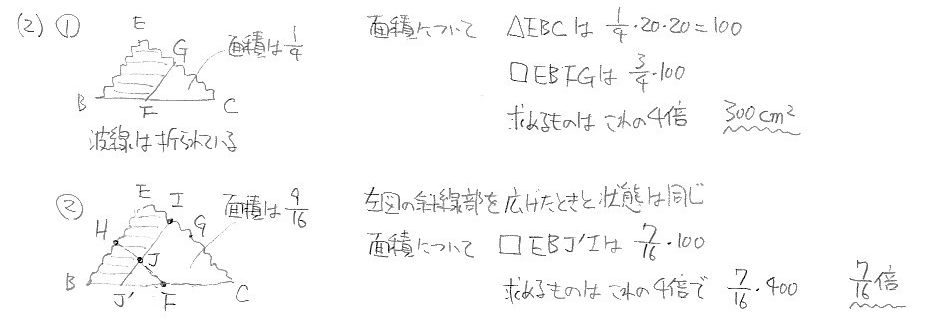 (2) ①
E
G
面積は 1/4
B
F
C
波線は折られている
面積について △EBCは 1/4・20・20=100
□EBFGは 3/4・100
求めるものは これの4倍 300cm²
②
E
I
面積は 9/16
H
G
J
B
J'
F
C
左図の斜線部を広げたときと状態は同じ
面積について □EBJ'Iは 7/16・100
求めるものは これの4倍で 7/16・400 7/16倍